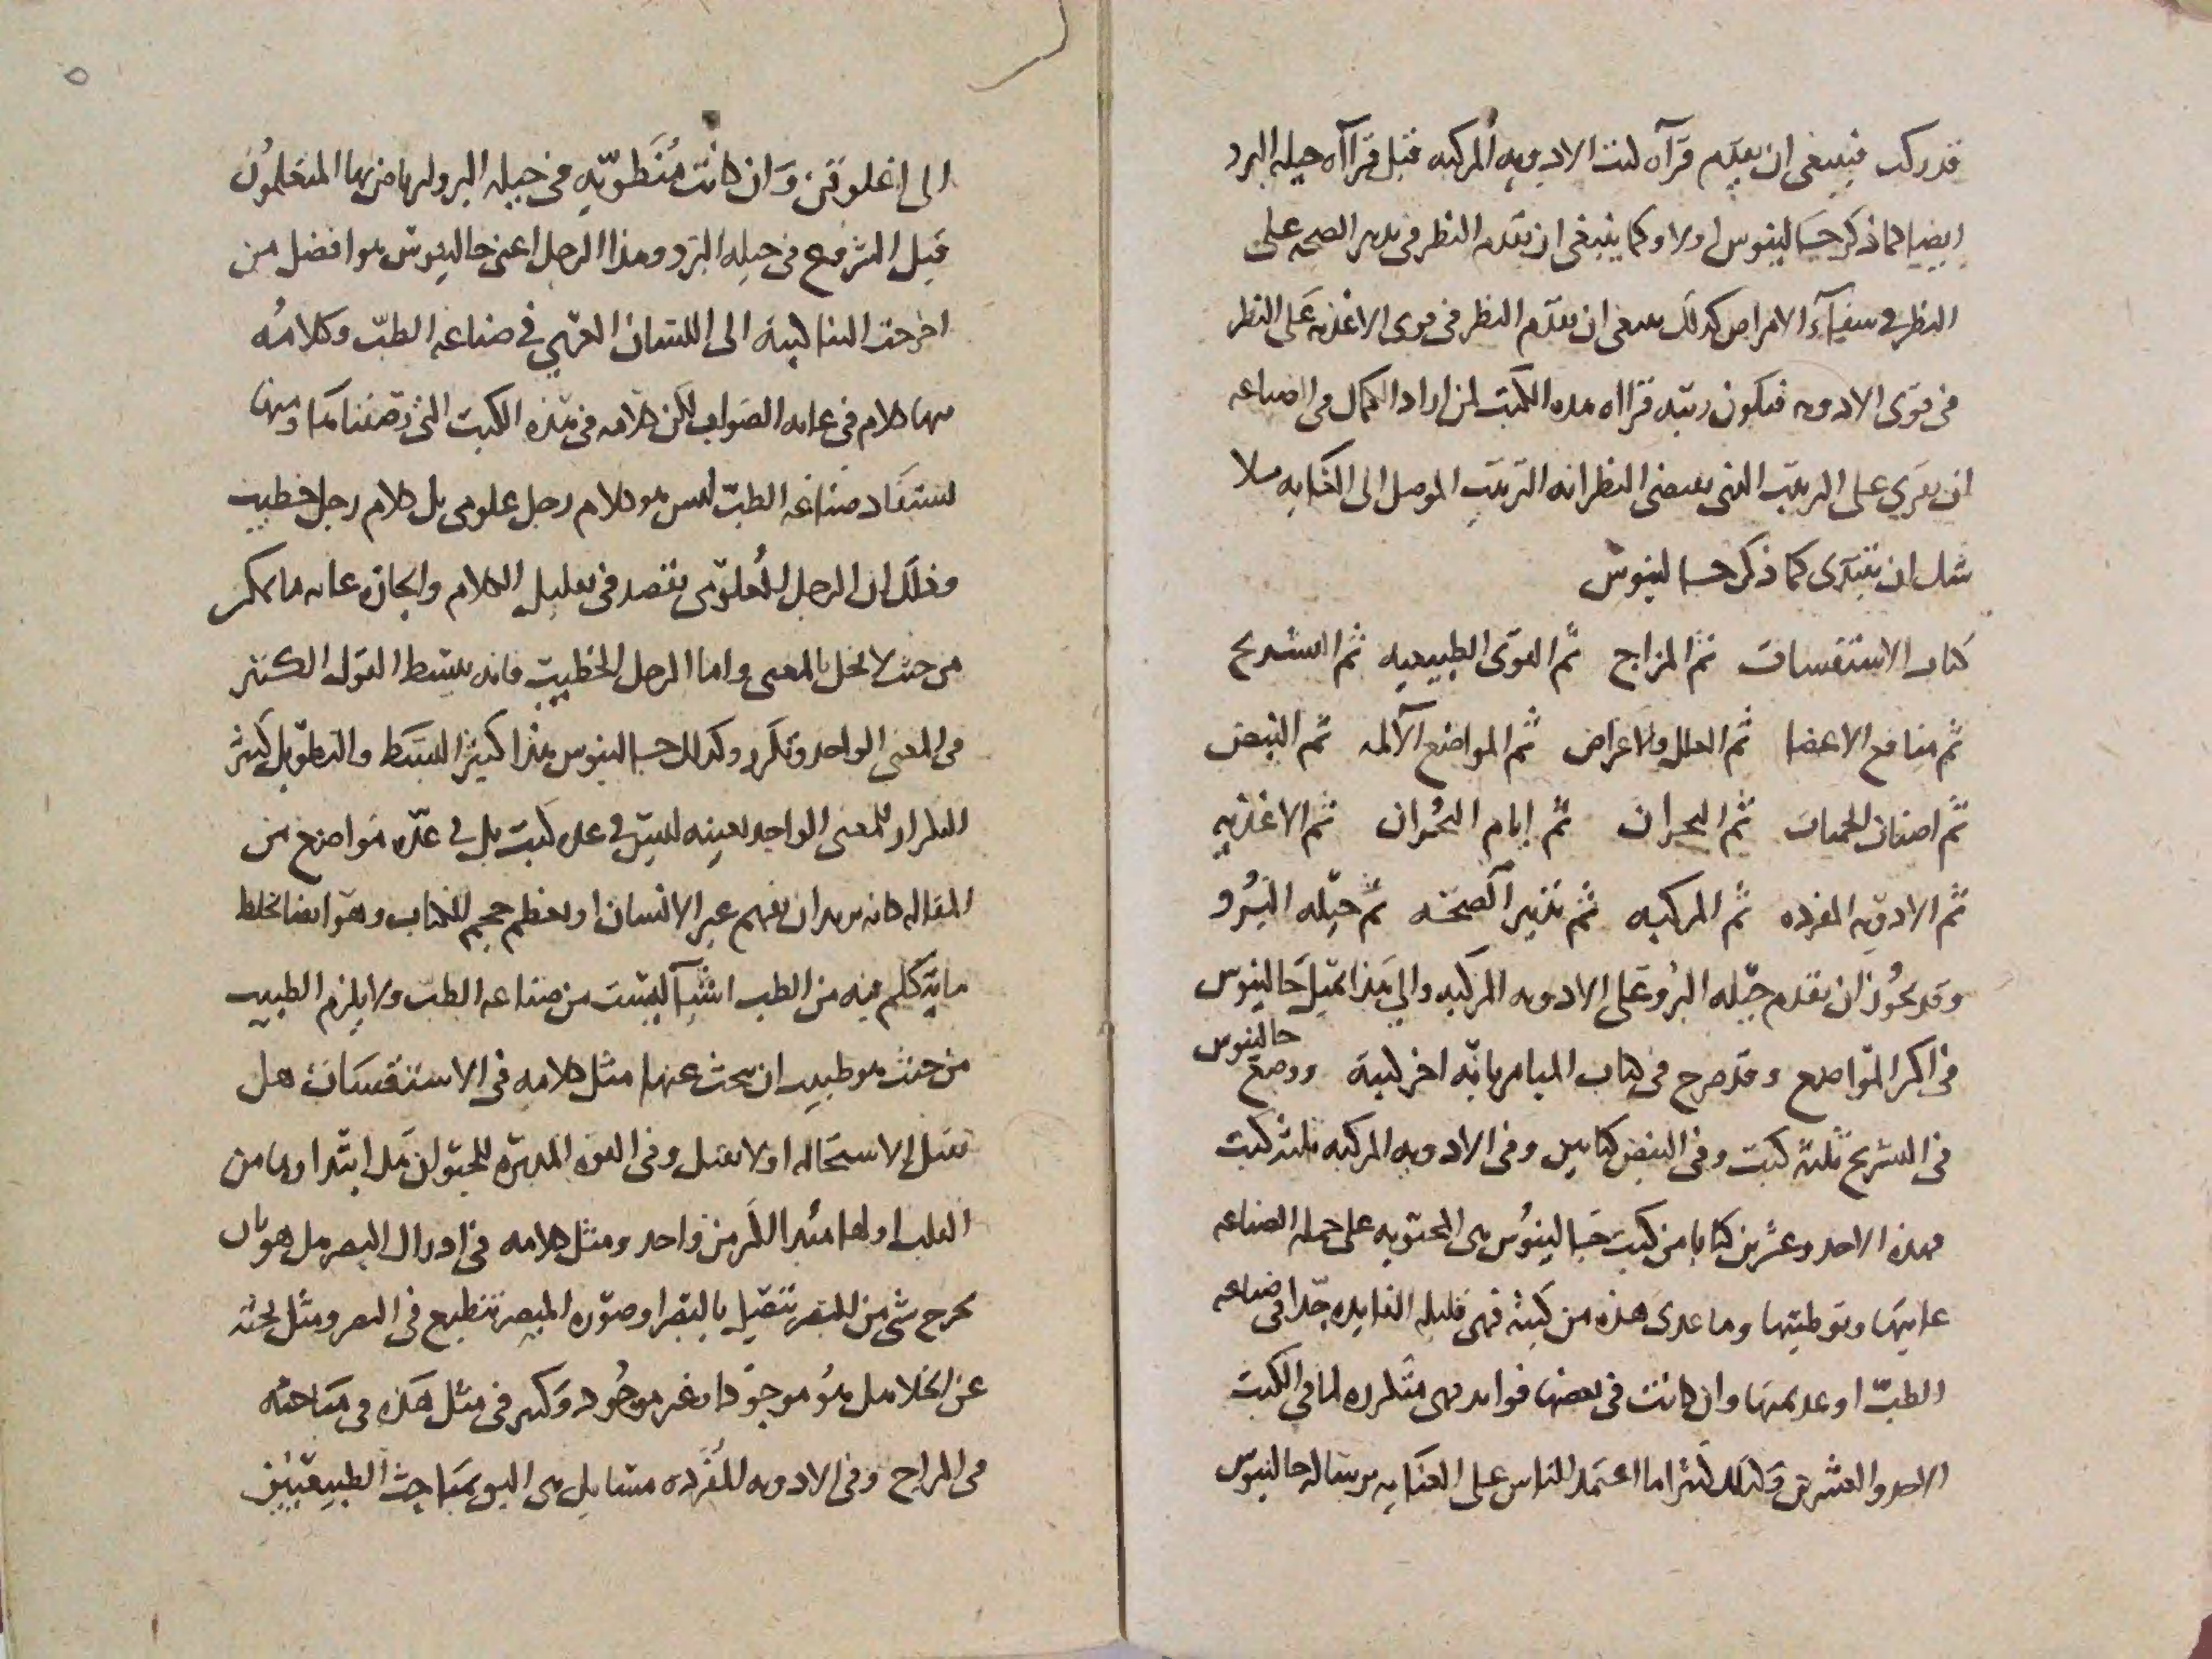 قد ركب فينبغي ان يقدم قرآه كتب الادويه المركبه قبل قراآه حيله البرو
ايضا كما ذكر جالينوس اولا وكما ينبغي ان يقدم النظر في تدبير الصحه على
النظر في شفاء الامراض كذلك ينبغي ان يقدم النظر في قوى الاغذيه على النظر
في قوى الادويه فيكون رتبه قراه هذه الكتب لمن اراد الكمال في الصناعه
ان يجري على الترتيب الذي يقتضي النظر انه الترتيب الموصل الى الغايه مثلا
مثل ان يبتدي كما ذكر جالينوس
كتاب الاستقسات ثم المزاج ثم القوى الطبيعيه ثم التشريح
ثم منافع الاعضا ثم العلل والاعراض ثم المواضع الآلمه ثم النبض
ثم اصناف الحميات ثم البحران ثم ايام البحران ثم الاغذيه
ثم الادويه المفرده ثم المركبه ثم تدبير الصحه ثم حيله البرو
وقد يجوز ان يقدم حيله البرو على الادويه المركبه والي هذا يميل جالينوس
في اكثر المواضع وقد صرح في كتاب الميامر بانه اخر كتبه ووضع جالينوس
في التشريح ثلثه كتب وفي النبض كتابين وفي الادويه المركبه ثلثه كتب
فهذه الاحد وعشرين كتابا من كتب جالينوس هي المحتويه على جمله الصناعه
غايتها وتوطيتها وما عدى هذه من كتبه فهي قليله الفايده جدا في صناعه
الطب او عديمتها وان كانت في بعضها فوايد فهي متكرره لما في الكتب
الاحد والعشرين ولذلك كثيرا ما اعتمد الناس على العنايه برساله جالينوس
الى اغلوقن وان كانت منطويه في حيله البرو ليرتاض بها المتعلمون
قبل الشروع في حيله البرو وهذا الرجل اعني جالينوس هو افضل من
اخرجت الينا كتبه الى اللسان العربي في صناعه الطب وكلامه
فيها كلام في غايه الصواب لكن كلامه في هذه الكتب التي وصفناها ومنها
تستفاد صناعه الطب ليس هو كلام رجل علومي بل كلام رجل خطيب
وذلك ان الرجل العلومي يقصد في تقليل الكلام وايجازه غايه ما يمكن
من حيث لا يخل بالمعنى واما الرجل الخطيب فانه يبسط القول الكثير
في المعنى الواحد وتكرر وكذلك جالينوس هذا كثير البسط والتطويل كثير
التكرار للمعنى الواحد بعينه ليس في عده كتب بل في عده مواضع من
المقاله كانه يريد ان يفهم غير الانسان او يعظم حجم الكتاب وهو ايضا يخلط
ما يتكلم فيه من الطب اشيآ ليست من صناعه الطب ولا يلزم الطبيب
من حيث هو طبيب ان يبحث عنها مثل كلامه في الاستقسات هل
تقبل الاستحاله او لا تقبل وفي القوه المدبره للحيوان هل ابتداوها من
القلب او لها مبدا اكثر من واحد ومثل كلامه في ادراك البصر هل هو بان
يخرج شي من البصر يتصل بالمبصر او صوره المبصر تنطبع في البصر ومثل بحثه
عن الخلا هل هو موجود او غير موجود وكثير في مثل هذه في مباحثه
في المزاج وفي الادويه المفرده مسايل هي اليق بمباحث الطبيعيين